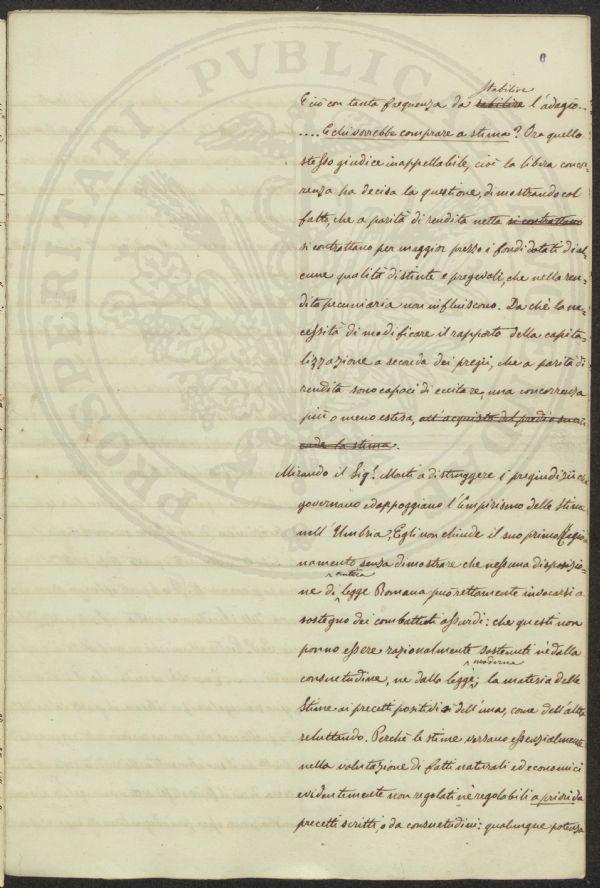 PROSPERITATI PVBLICAE
stabilire
E ciò con tanta frequenza da stabilire l'adagio...
.... E chi vorrebbe comprare a stima? Ora quello
stesso giudice inappellabile, cioè la libera concor-
renza ha decisa la questione, dimostrando col
fatto, che a parità di rendita netta si contrattano
si contrattano per maggior prezzo i fondi dotati di al-
cune qualità distinte e pregevoli, che nella ren-
dita pecuniaria non influiscono. Da chè la ne-
cessità di modificare il rapporto della capita-
lizzazione a seconda dei pregii, che a parità di
rendita sono capaci di eccitare, una concorrenza
più o meno estesa, all'acquisto del predio
la stima.
Mirando il Sig.r Monti a distruggere i pregiudizii che
governano ed appoggiano l'Empirismo delle Stime
nell'Umbria, Egli non chiude il suo primo Ragio-
namento senza dimostrare che nessuna disposizio-
antica
ne di legge Romana può rettamente invocarsi a
sostegno dei combattuti assurdi: che questi non
ponno essere razionalmente sostenuti nè dalla
moderna
consuetudine, ne dalla legge; la materia delle
Stime ai precetti positivi sì dell'una, come dell'altra
reluttando. Perchè le stime versano essenzialmente
nella valutazione di fatti naturali ed economici
evidentemente non regolati nè regolabili a priori da
precetti scritti, o da consuetudini: qualunque potenza